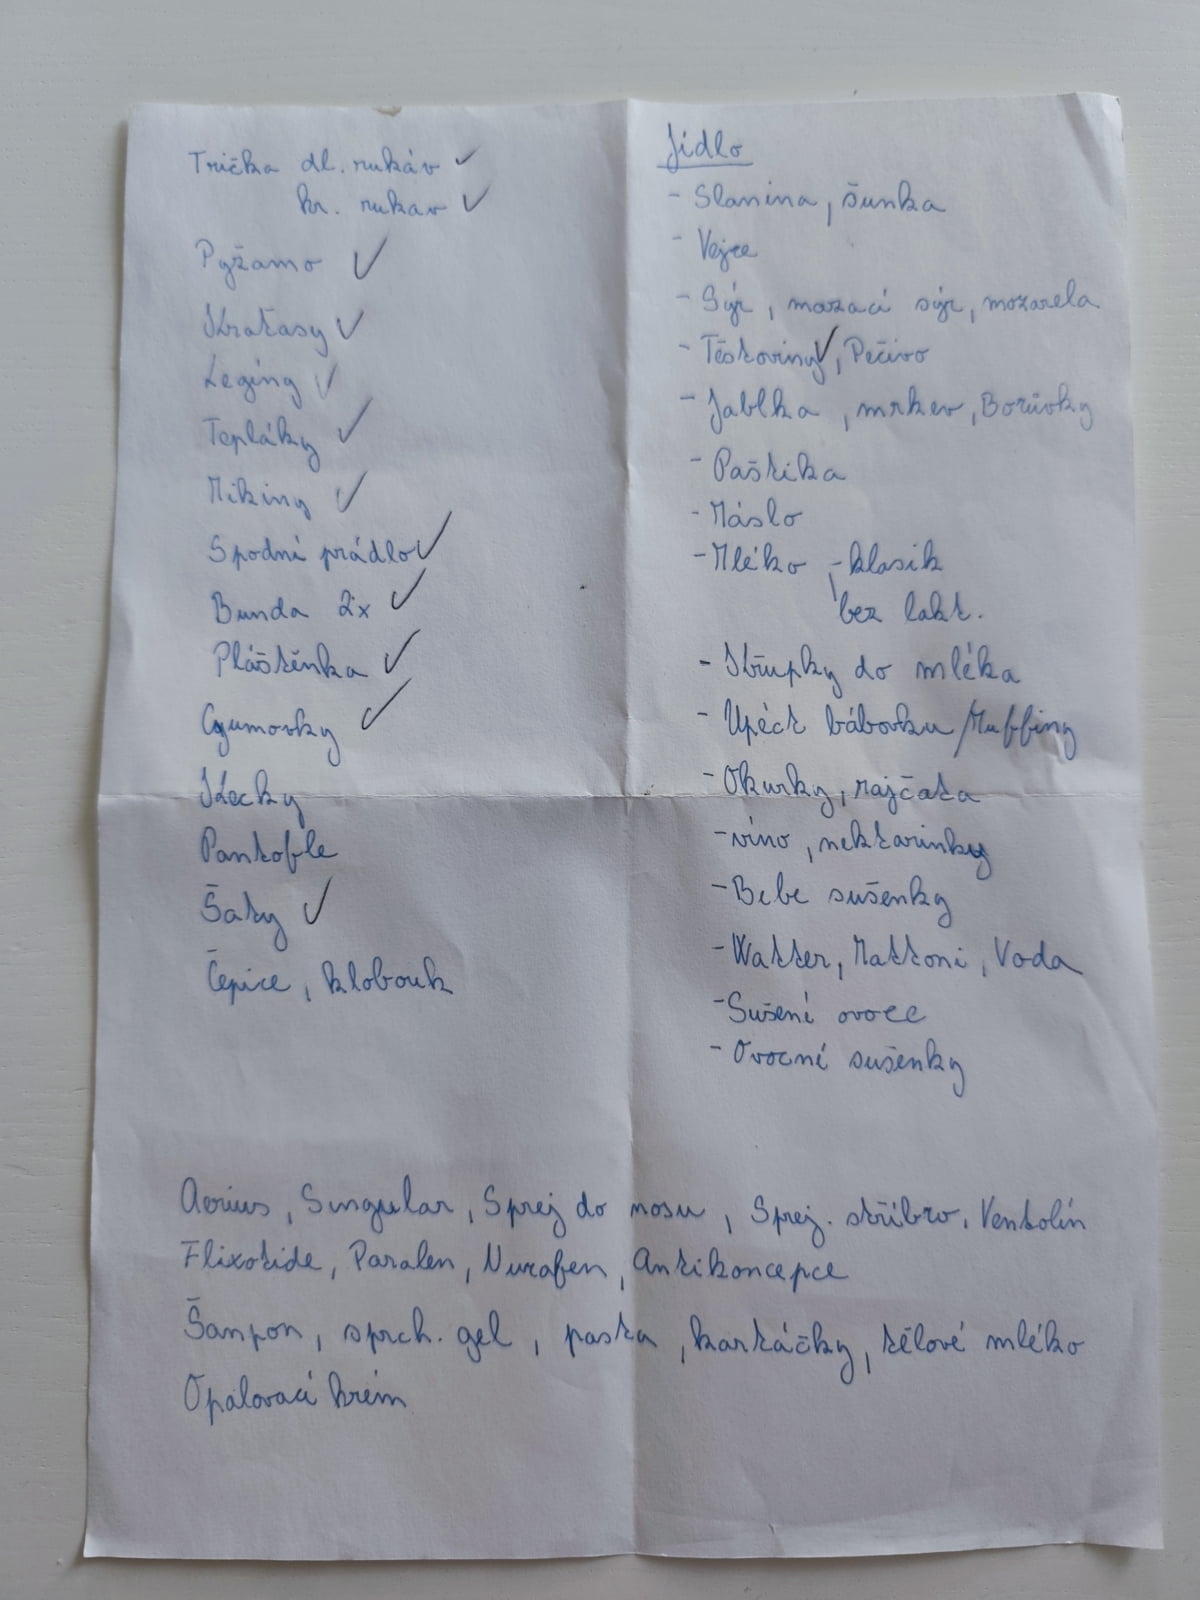 Trička dl. rukáv ✓
kr. rukav ✓
Pyžamo ✓
Kraťasy ✓
Legíny ✓
Tepláky ✓
Mikiny ✓
Spodní prádlo ✓
Bunda 2x ✓
Pláštěnka ✓
Gumovky ✓
Kecky
Pantofle
Šaty ✓
Čepice, klobouk
Jídlo
- Slanina, šunka
- Vejce
- Sýr, mazací sýr, mozarela
- Těstoviny ✓, Pečivo
- Jablka, mrkev, Borůvky
- Paštika
- Máslo
- Mléko - klasik
bez lakt.
- Křupky do mléka
- Upéct bábovku / Muffiny
- Okurky, rajčata
- víno, nektarinky
- Bebe sušenky
- Watter, Mattoni, Voda
- Sušení ovoce
- Ovocné sušenky
Aerius, Singular, Sprej do nosu, Sprej. stříbro, Ventolín
Flixotide, Paralen, Nurofen, Antikoncepce
Šanpon, sprch. gel, pasta, kartáčky, tělové mléko
Opalovací krém